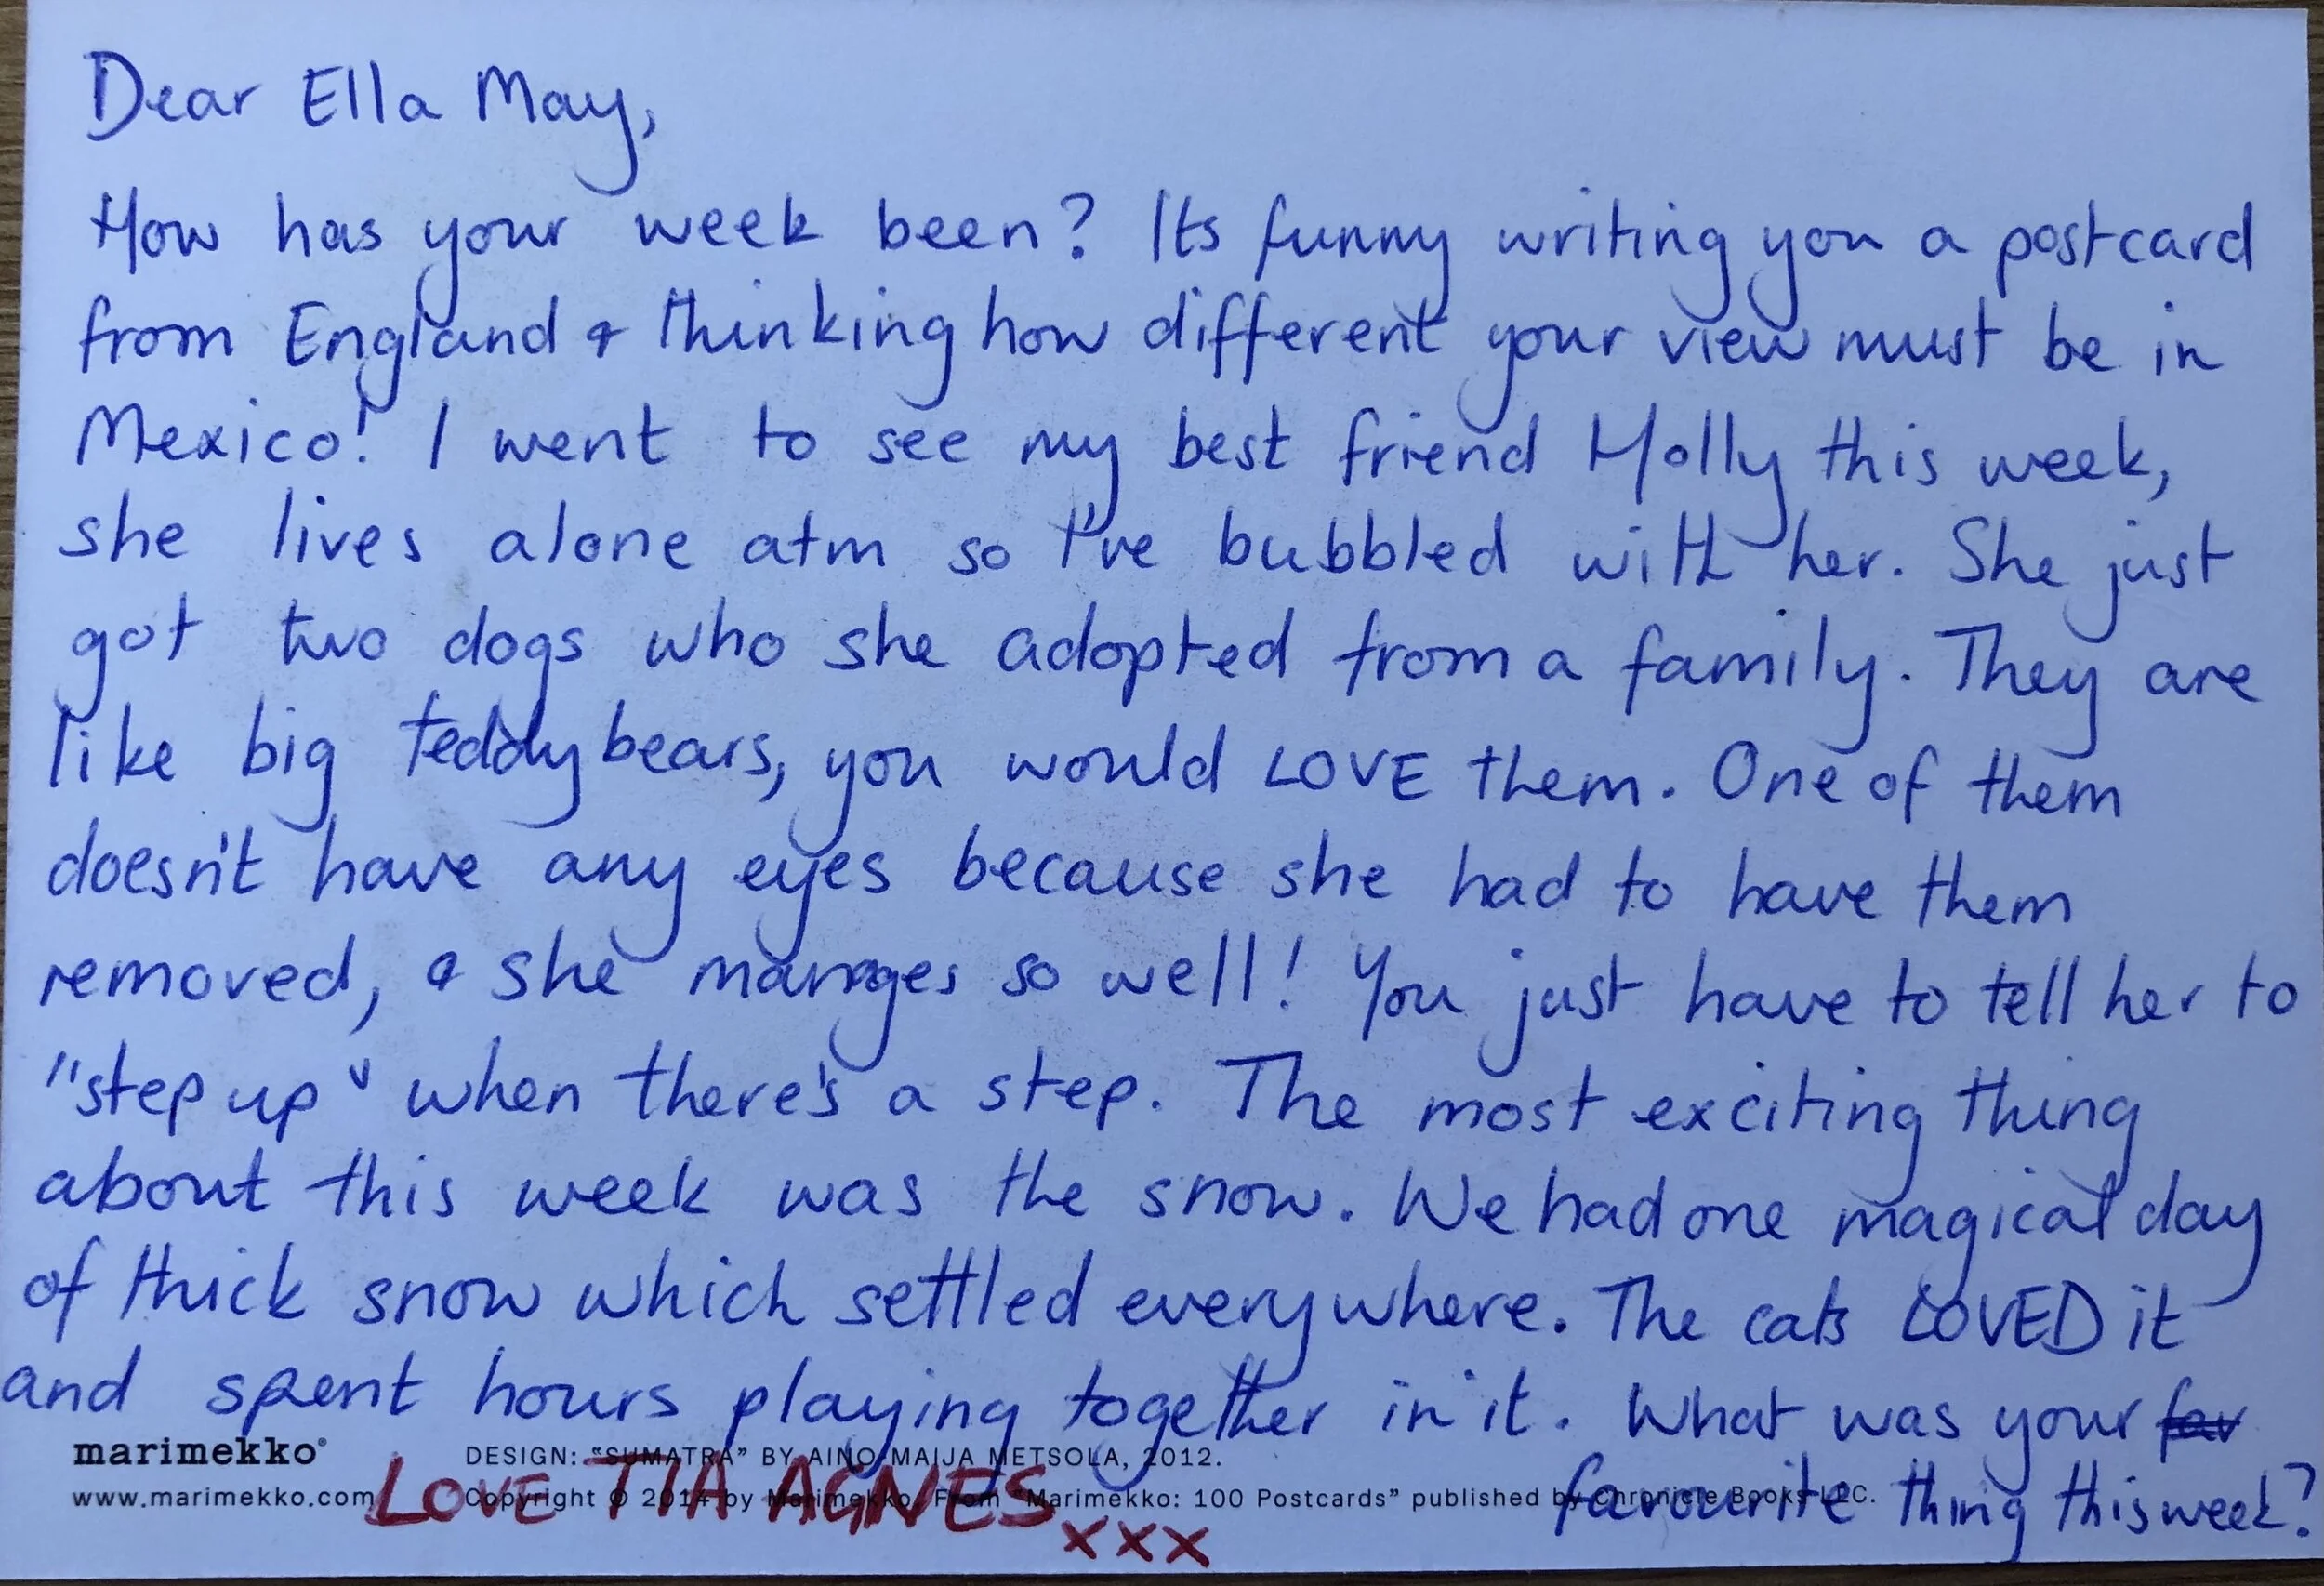 Dear Ella May,
How has your week been? Its funny writing you a postcard
from England & thinking how different your view must be in
Mexico! I went to see my best friend Molly this week,
she lives alone atm so I've bubbled with her. She just
got two dogs who she adopted from a family. They are
like big teddy bears, you would LOVE them. One of them
doesn't have any eyes because she had to have them
removed, & she manages so well! You just have to tell her to
"step up" when there's a step. The most exciting thing
about this week was the snow. We had one magical day
of thick snow which settled everywhere. The cats LOVED it
and spent hours playing together in it. What was your fav
favourite thing this week?
marimekko®
www.marimekko.com
DESIGN: "SUMATRA" BY AINO MAIJA METSOLA, 2012.
Copyright © 2014 by Marimekko. From "Marimekko: 100 Postcards" published by Chronicle Books LLC.
LOVE TIA AGNES xxx